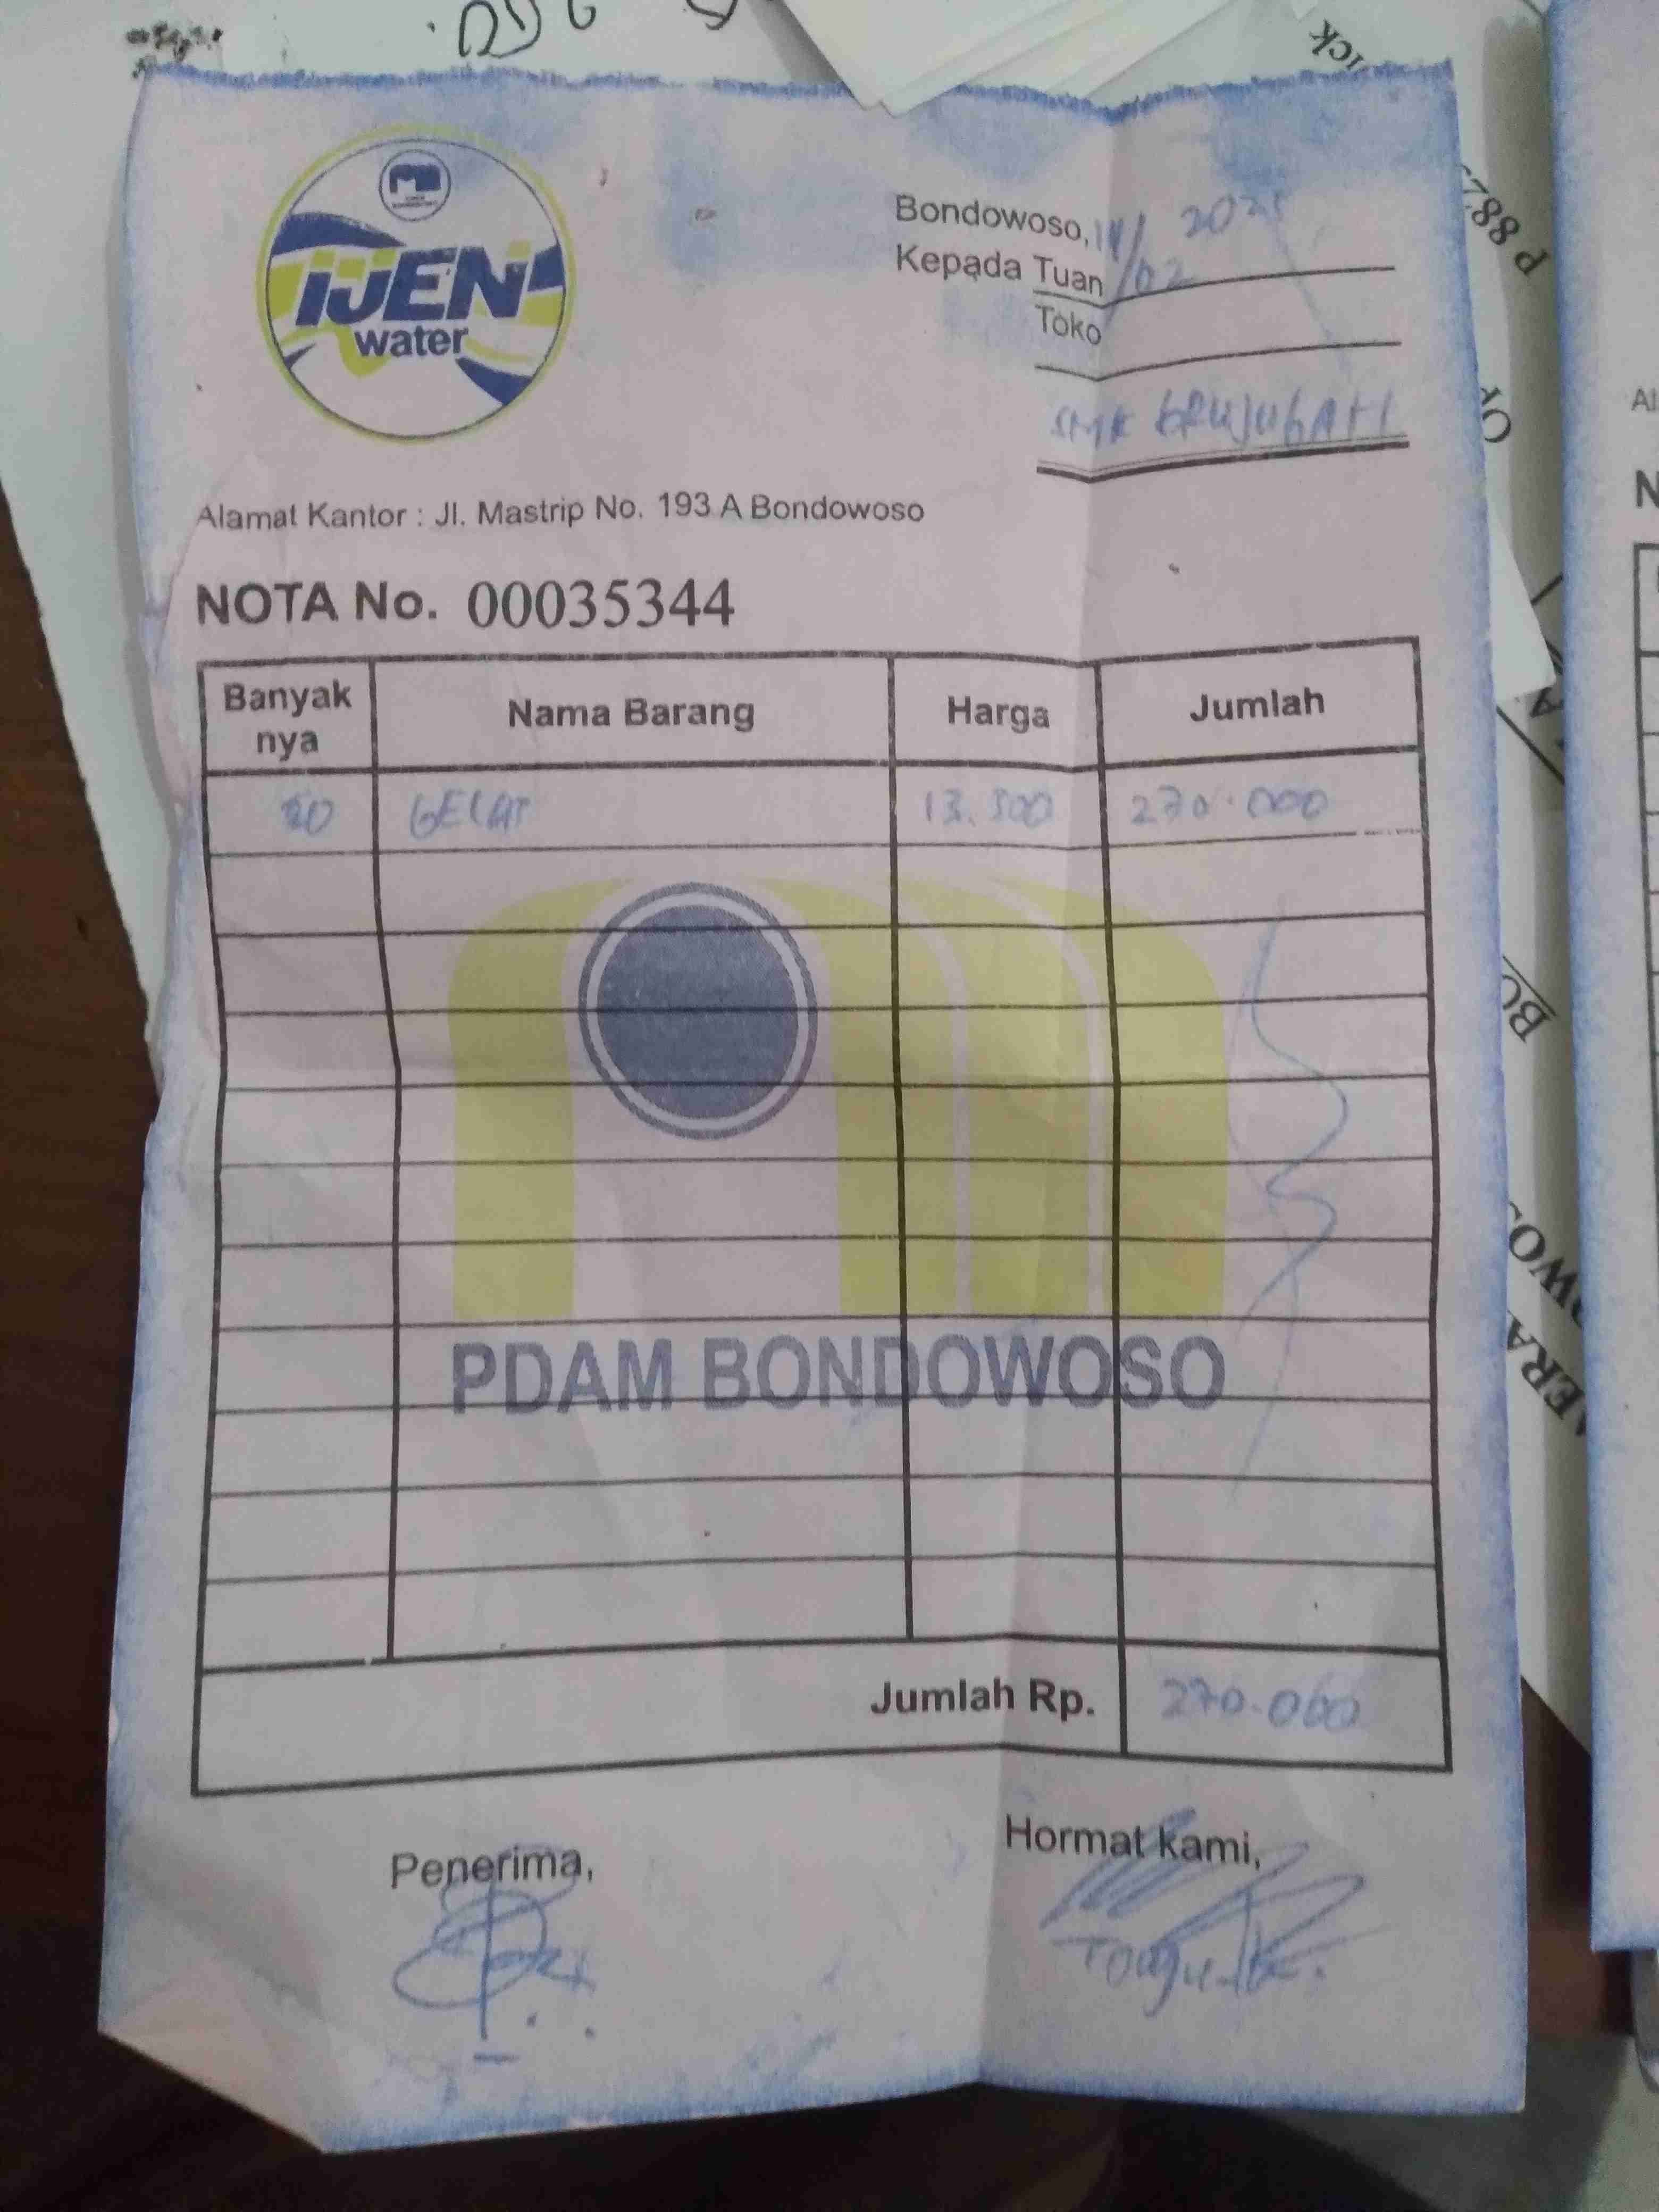 IJEN
water
Bondowoso, 14/02 2025
Kepada Tuan
Toko
SMK
Alamat Kantor : Jl. Mastrip No. 193 A Bondowoso
NOTA No. 00035344
Banyak nya Nama Barang Harga Jumlah
20 GELAS 13.500 270.000
PDAM BONDOWOSO
Jumlah Rp. 270.000
Penerima,
Hormat kami,
P 882
BO